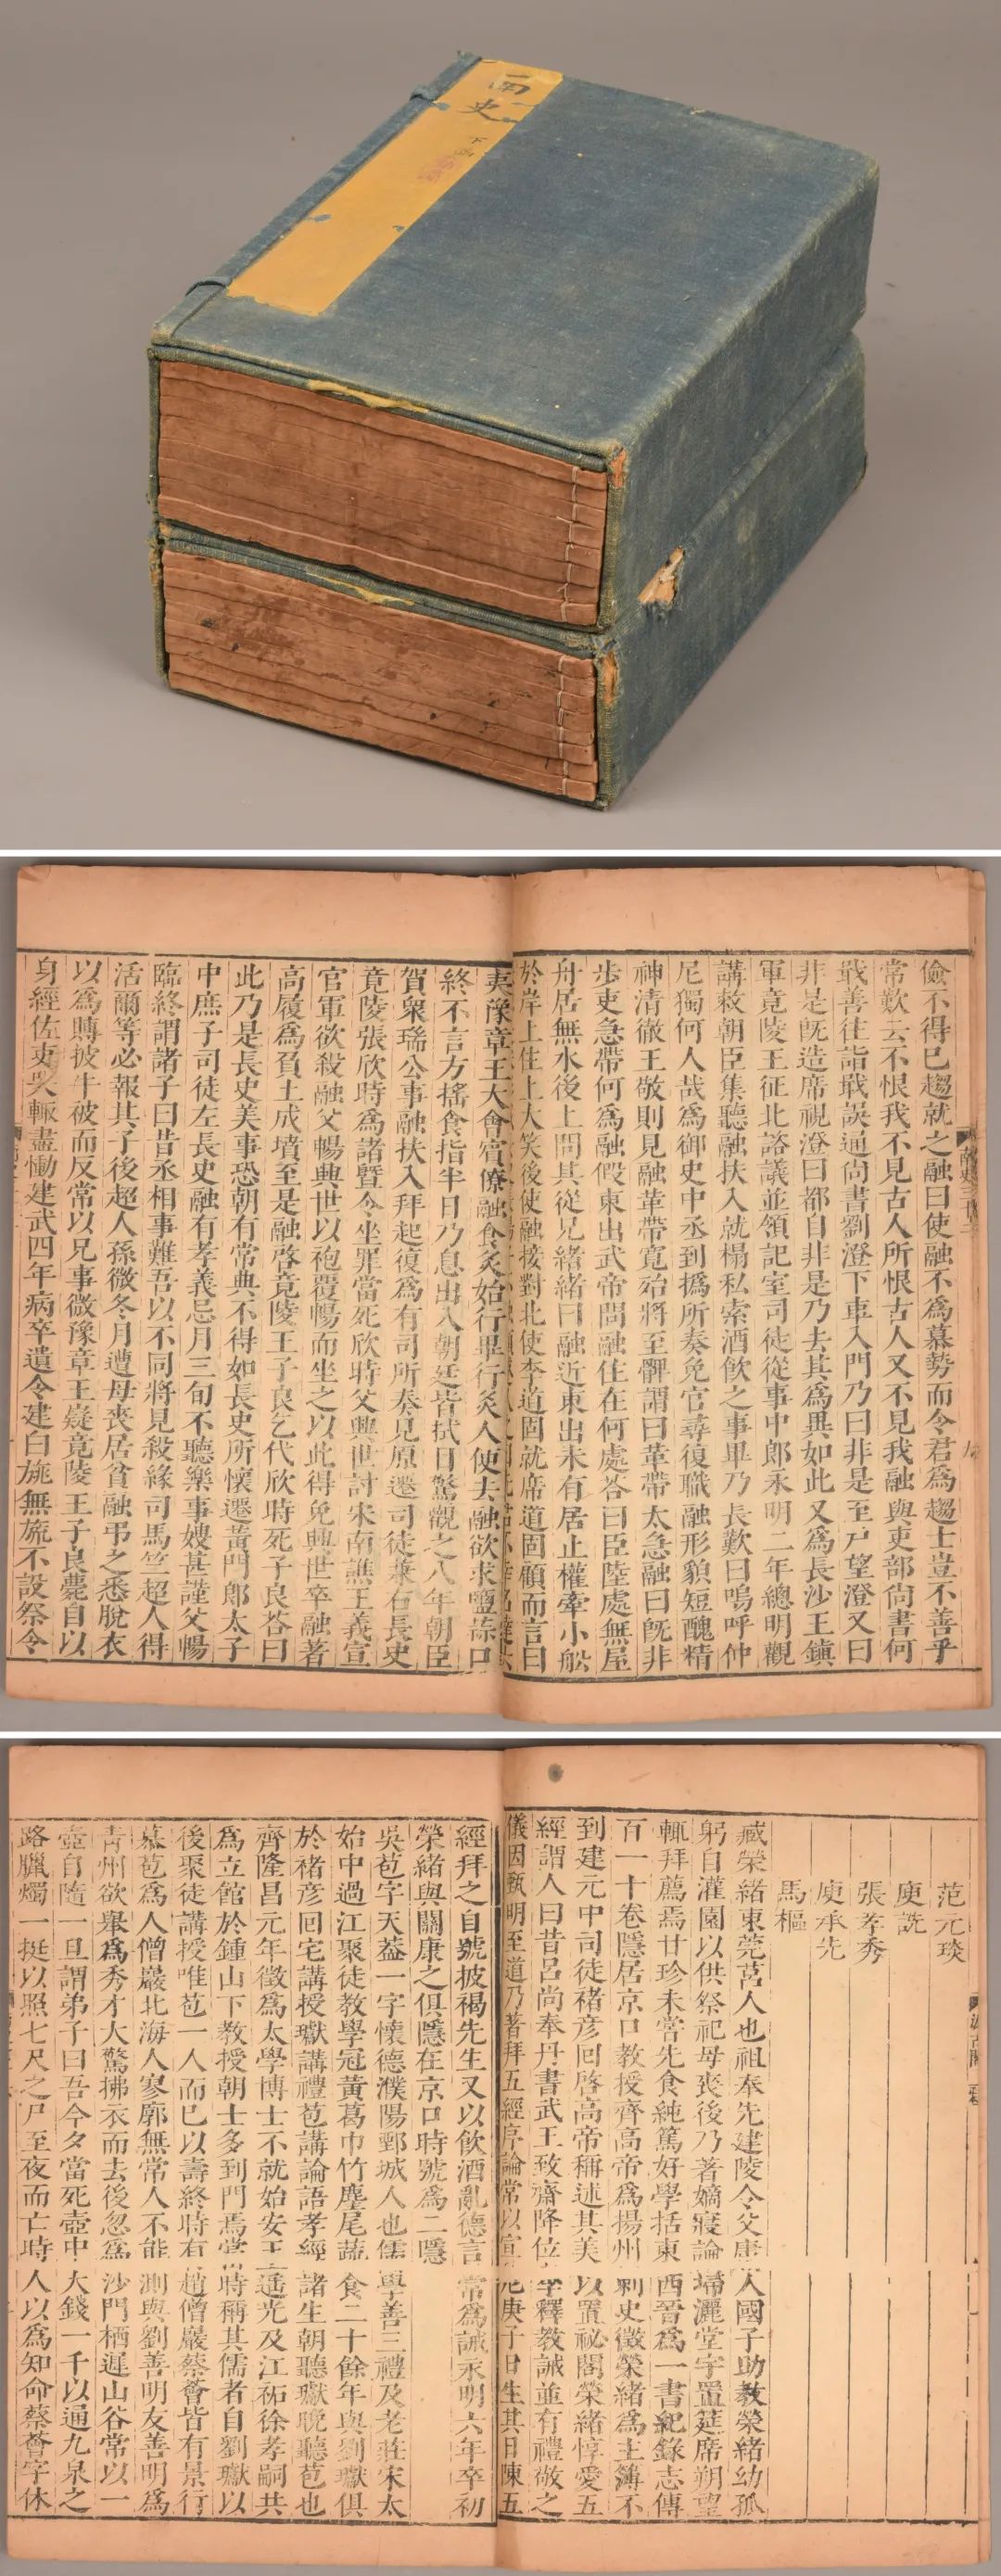 南史
下函
儉不得已趨就之融曰使融不為慕勢而令君為趨士豈不善乎
常歎云不恨我不見古人所恨古人又不見我融與吏部尚書何
戢善往詣戢誤通尚書劉澄下車入門乃曰非是至戶望澄又曰
非是既造席視澄曰都自非是乃去其為異如此又為長沙王鎮
軍竟陵王征北諮議並領記室司徒從事中郎永明二年總明觀
講敕朝臣集聽融扶入就榻私索酒飲之事畢乃長歎曰嗚呼仲
尼獨何人哉為御史中丞到撝所奏免官尋復職融形貌短醜精
神清徹王敬則見融革帶寬殆將至髀謂曰革帶太急融曰既非
步吏急帶何為融假東出武帝問融住在何處答曰臣陸處無屋
舟居無水後上問其從兄緒緒曰融近東出未有居止權牽小船
於岸上住上大笑後使融接對北使李道固就席道固顧而言曰
夷豫章王大會賓僚融食炙始行畢行炙人便去融欲求鹽蒜口
終不言方搖食指半日乃息出入朝廷皆拭目驚觀之八年朝臣
賀衆瑞公事融扶入拜起復為有司所奏見原遷司徒兼右長史
竟陵張欣時為諸暨令坐罪當死欣時父興世討宋南譙王義宣
官軍欲殺融父暢興世以袍覆暢而坐之以此得免興世卒融著
高履為負土成墳至是融啓竟陵王子良乞代欣時死子良荅曰
此乃是長史美事恐朝有常典不得如長史所懷遷黃門郎太子
中庶子司徒左長史融有孝義忌月三旬不聽樂事嫂甚謹父暢
臨終謂諸子曰昔丞相事難吾以不同將見殺緣司馬竺超人得
活爾等必報其子後超人孫微冬月遭母喪居貧融弔之悉脫衣
以為賻披牛被而反常以兄事微豫章王嶷竟陵王子良薨自以
身經佐吏哭輒盡慟建武四年病卒遺令建白旐無旒不設祭令
范元琰
庾詵
張孝秀
庾承先
馬樞
臧榮緒東莞莒人也祖奉先建陵令父庸人國子助教榮緒幼孤
躬自灌園以供祭祀母喪後乃著嫡寢論埽灑堂宇置筵席朔望
輒拜薦焉甘珍未嘗先食純篤好學括東西晉為一書紀錄志傳
百一十卷隱居京口教授齊高帝為揚州刺史徵榮緒為主簿不
到建元中司徒褚彥回啓高帝稱述其美以置祕閣榮緒惇愛五
經謂人曰昔呂尚奉丹書武王致齋降位李釋教誡並有禮敬之
儀因甄明至道乃著拜五經序論常以宣尼庚子日生其日陳五
經拜之自號披褐先生又以飲酒亂德言常為誡永明六年卒初
榮緒與關康之俱隱在京口時號為二隱
吳苞字天蓋一字懷德濮陽鄄城人也儒學善三禮及老莊宋太
始中過江聚徒教學冠黃葛巾竹麈尾蔬食二十餘年與劉瓛俱
於褚彥回宅講授瓛講禮苞講論語孝經諸生朝聽瓛晚聽苞也
齊隆昌元年徵為太學博士不就始安王遙光及江祏徐孝嗣共
為立館於鍾山下教授朝士多到門焉當時稱其儒者自劉瓛以
後聚徒講授唯苞一人而已以壽終時有趙僧巖蔡薈皆有景行
慕苞為人僧巖北海人寥廓無常人不能測與劉善明友善明為
青州欲舉為秀才大驚拂衣而去後忽為沙門栖遲山谷常以一
壺自隨一旦謂弟子曰吾今夕當死壺中大錢一千以通九泉之
路臘燭一挺以照七尺之尸至夜而亡時人以為知命蔡薈字休